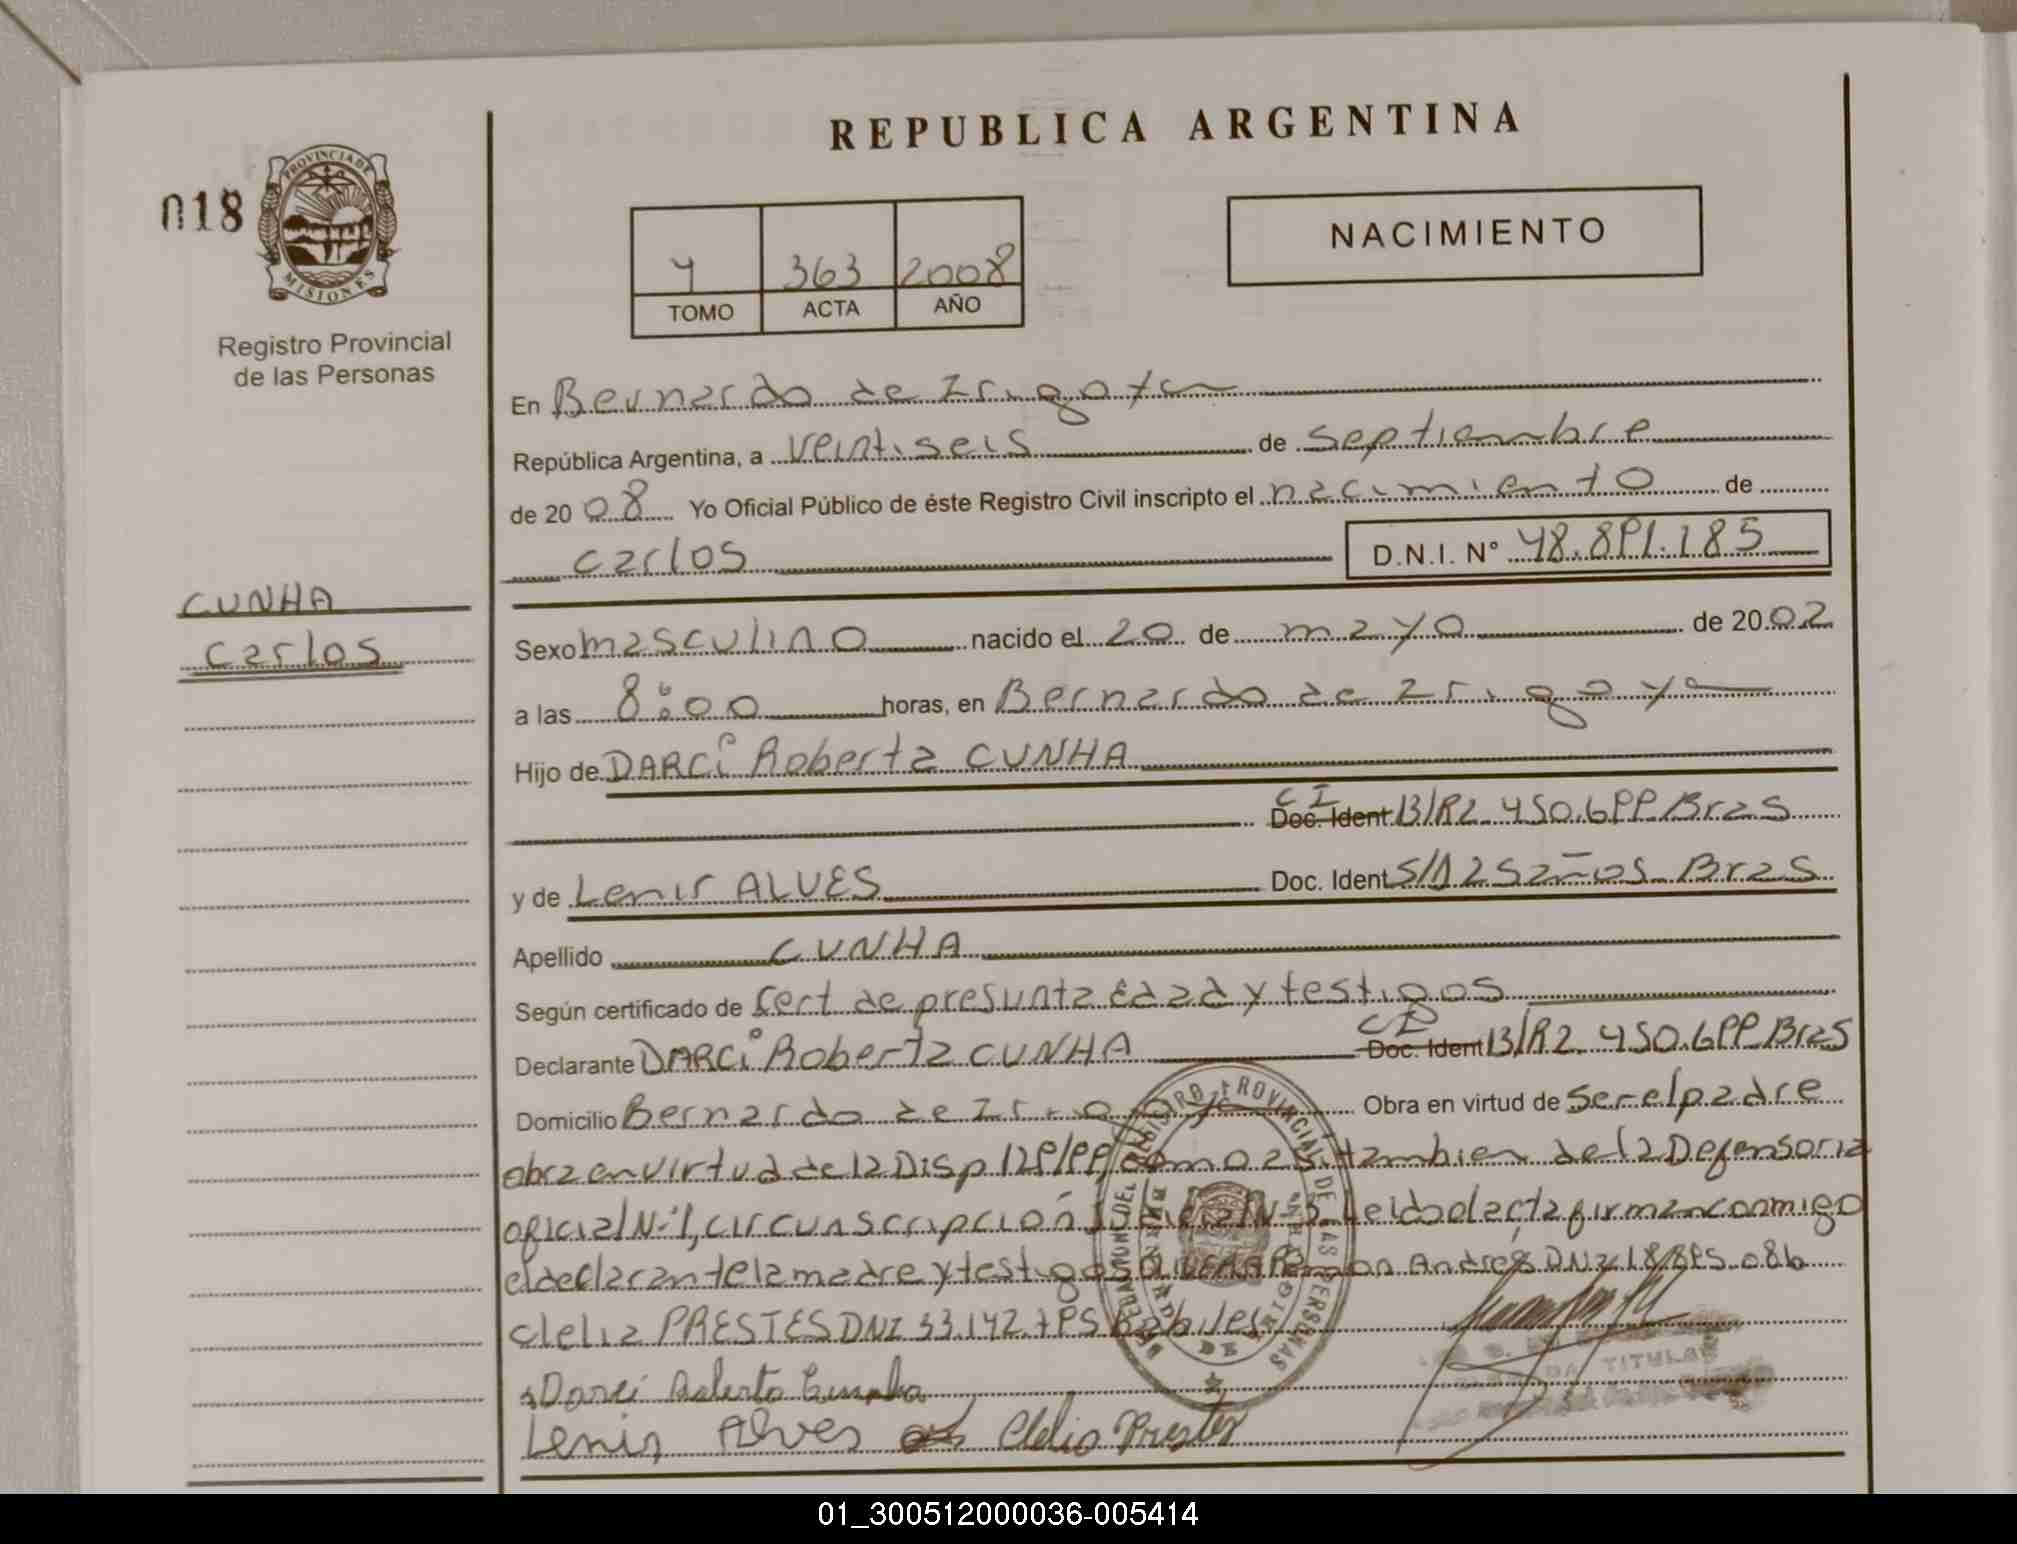 REPUBLICA ARGENTINA
018
PROVINCIA DE
MISIONES
Registro Provincial
de las Personas
4 363 2008
TOMO ACTA AÑO
NACIMIENTO
En Bernardo de Irigoyen
República Argentina, a veintiseis de septiembre
de 2008 Yo Oficial Público de éste Registro Civil inscripto el nacimiento de
Carlos D.N.I. N° 48.891.185
CUNHA
Carlos
Sexo masculino nacido el 20 de mayo de 2002
a las 8:00 horas, en Bernardo de Irigoyen
Hijo de DARCi Roberto CUNHA
CI Doc. Ident B/R2.450.699 Bras
y de Lenir ALVES Doc. Ident S/D 25 años Bras
Apellido CUNHA
Según certificado de Cert de presunta Edad y testigos
Declarante DARCi Roberto CUNHA CI Doc. Ident B/R2.450.699 Bras
Domicilio Bernardo de Irigoyen Obra en virtud de ser el padre
obra en virtud de la Disp 129/99, como asi tambien de la Defensoria
oficial N°1, circunscripción Judicial N° 3. Leida el acta firman conmigo
el declarante la madre y testigos Ramon Andrés DNI 18.895.086
Clelia PRESTES DNI 33.142.795 habiles
Darci Roberto Cunha
Lenir Alves Clelia Prestes
TITULAR
REGISTRO PROVINCIAL DE LAS PERSONAS
01_300512000036-005414